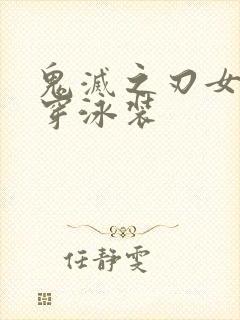 鬼滅之刃女
穿泳装
任静雯